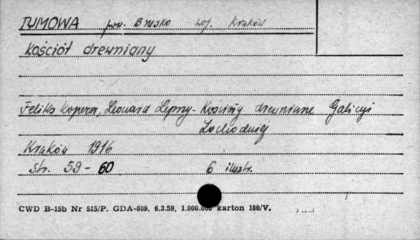 TYMOWA pow. Brzesko woj. Kraków
kościół drewniany
Feliks Kopera, Leonard Lepszy - Kościoły drewniane Galicyi
Zachodniej
Kraków 1916
str. 59 - 60 6 ilustr.
CWD B-15b Nr 515/P. GDA-809. 6.3.59, 1.000.000 karton 180/V.